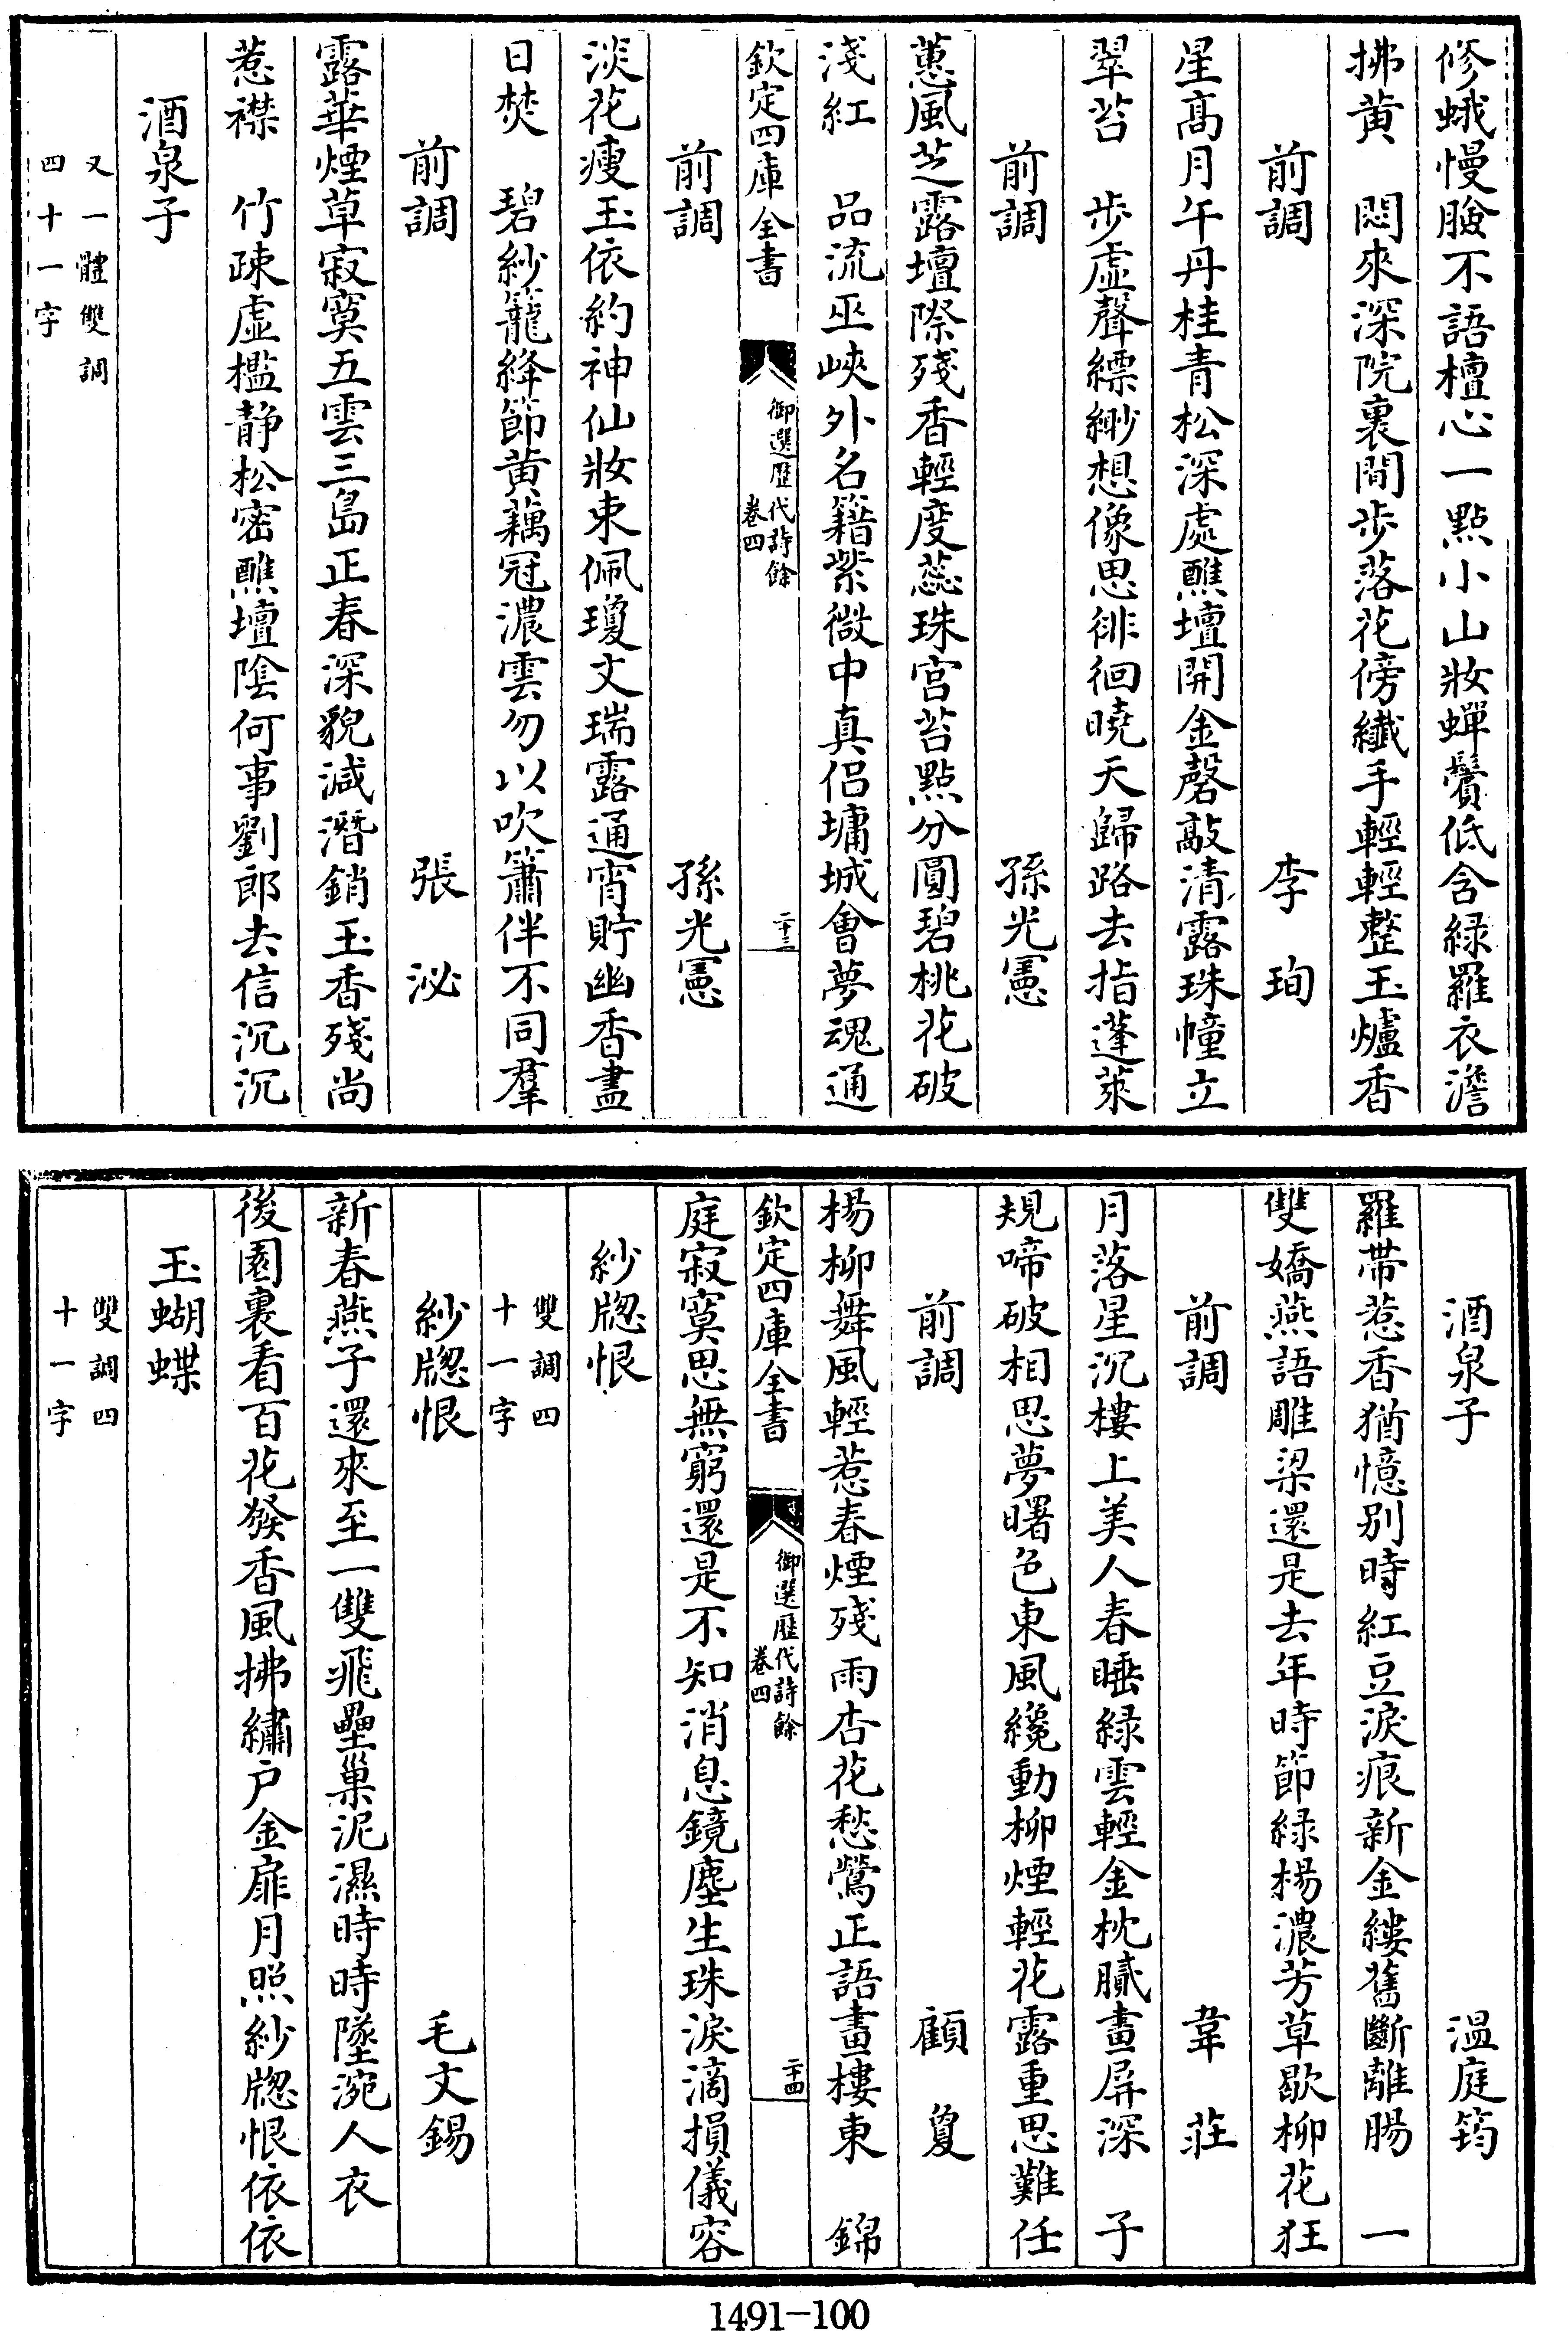 修蛾慢臉不語檀心一點小山妝蟬鬢低含緑羅衣澹
拂黄　悶來深院裏間步落花傍纎手輕輕整玉爐香
前調　李珣
星髙月午丹桂青松深處醮壇開金磬敲清露珠幢立
翠苔　步虚聲縹緲想像思徘徊曉天歸路去指蓬萊
前調　孫光憲
蕙風芝露壇際殘香輕度蕊珠宫苔點分圓碧桃花破
淺紅　品流巫峽外名籍紫微中真侣墉城會夢魂通
欽定四庫全書　御選歷代詩餘卷四　二十三
前調　孫光憲
淡花瘦玉依約神仙妝束佩瓊文瑞露通宵貯幽香盡
日焚　碧紗籠絳節黄藕冠濃雲勿以吹簫伴不同羣
前調　張泌
露華煙草寂寞五雲三島正春深貌減潛銷玉香殘尚
惹襟　竹疎虚檻静松密醮壇陰何事劉郎去信沉沉
酒泉子
又一體雙調
四十一字
酒泉子　温庭筠
羅帶惹香猶憶别時紅豆淚痕新金縷舊斷離腸　一
雙嬌燕語雕梁還是去年時節緑楊濃芳草歇柳花狂
前調　韋莊
月落星沉樓上美人春睡緑雲輕金枕膩畫屏深　子
規啼破相思夢曙色東風纔動柳煙輕花露重思難任
前調　顧夐
楊柳舞風輕惹春煙殘雨杏花愁鶯正語畫樓東　錦
欽定四庫全書　御選歷代詩餘卷四　二十四
庭寂寞思無窮還是不知消息鏡塵生珠淚滴損儀容
紗牕恨
雙調四
十一字
紗牕恨　毛文錫
新春燕子還來至一雙飛壘巢泥濕時時墜涴人衣
後園裏看百花發香風拂繡户金扉月照紗牕恨依依
玉蝴蝶
雙調四
十一字
1491-100